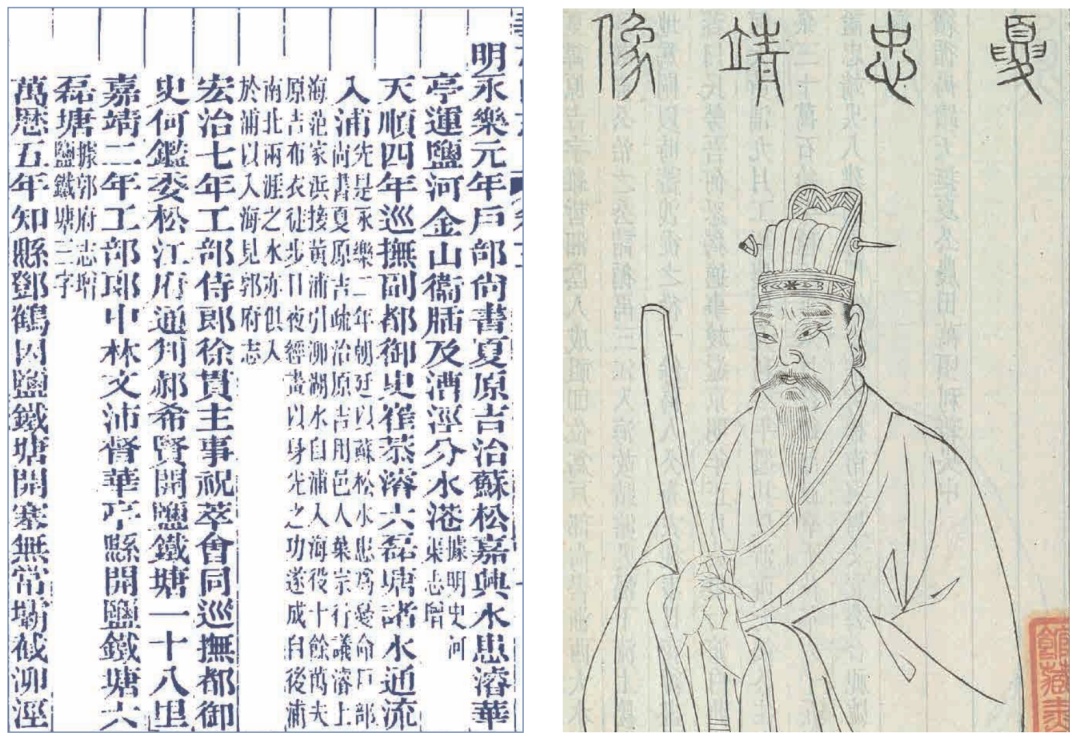 明永樂元年戶部尚書夏原吉治蘇松嘉興水患濬華
亭運鹽河金山衞牐及漕涇分水港
據明史河
渠志增
天順四年巡撫副都御史崔恭濬六磊塘諸水通流
入浦
先是永樂二年朝廷以蘇松水患爲憂命戶部
尚書夏原吉疏治原吉用邑人葉宗行議濬上
海范家浜接黃浦引泖湖水自浦入海役十餘萬夫
原吉布衣徒步日夜經畫以身先之功遂成自後浦
南北兩涯之水亦俱入
於浦以入海見郭府志
宏治七年工部侍郎徐貫主事祝萃會同巡撫都御
史何鑑委松江府通判郝希賢開鹽鐵塘一十八里
嘉靖二年工部郎中林文沛督華亭縣開鹽鐵塘六
磊塘
據郭府志增
鹽鐵塘三字
萬歷五年知縣鄧鶴因鹽鐵塘開塞無常壩截泖涇
夏忠靖像
館藏